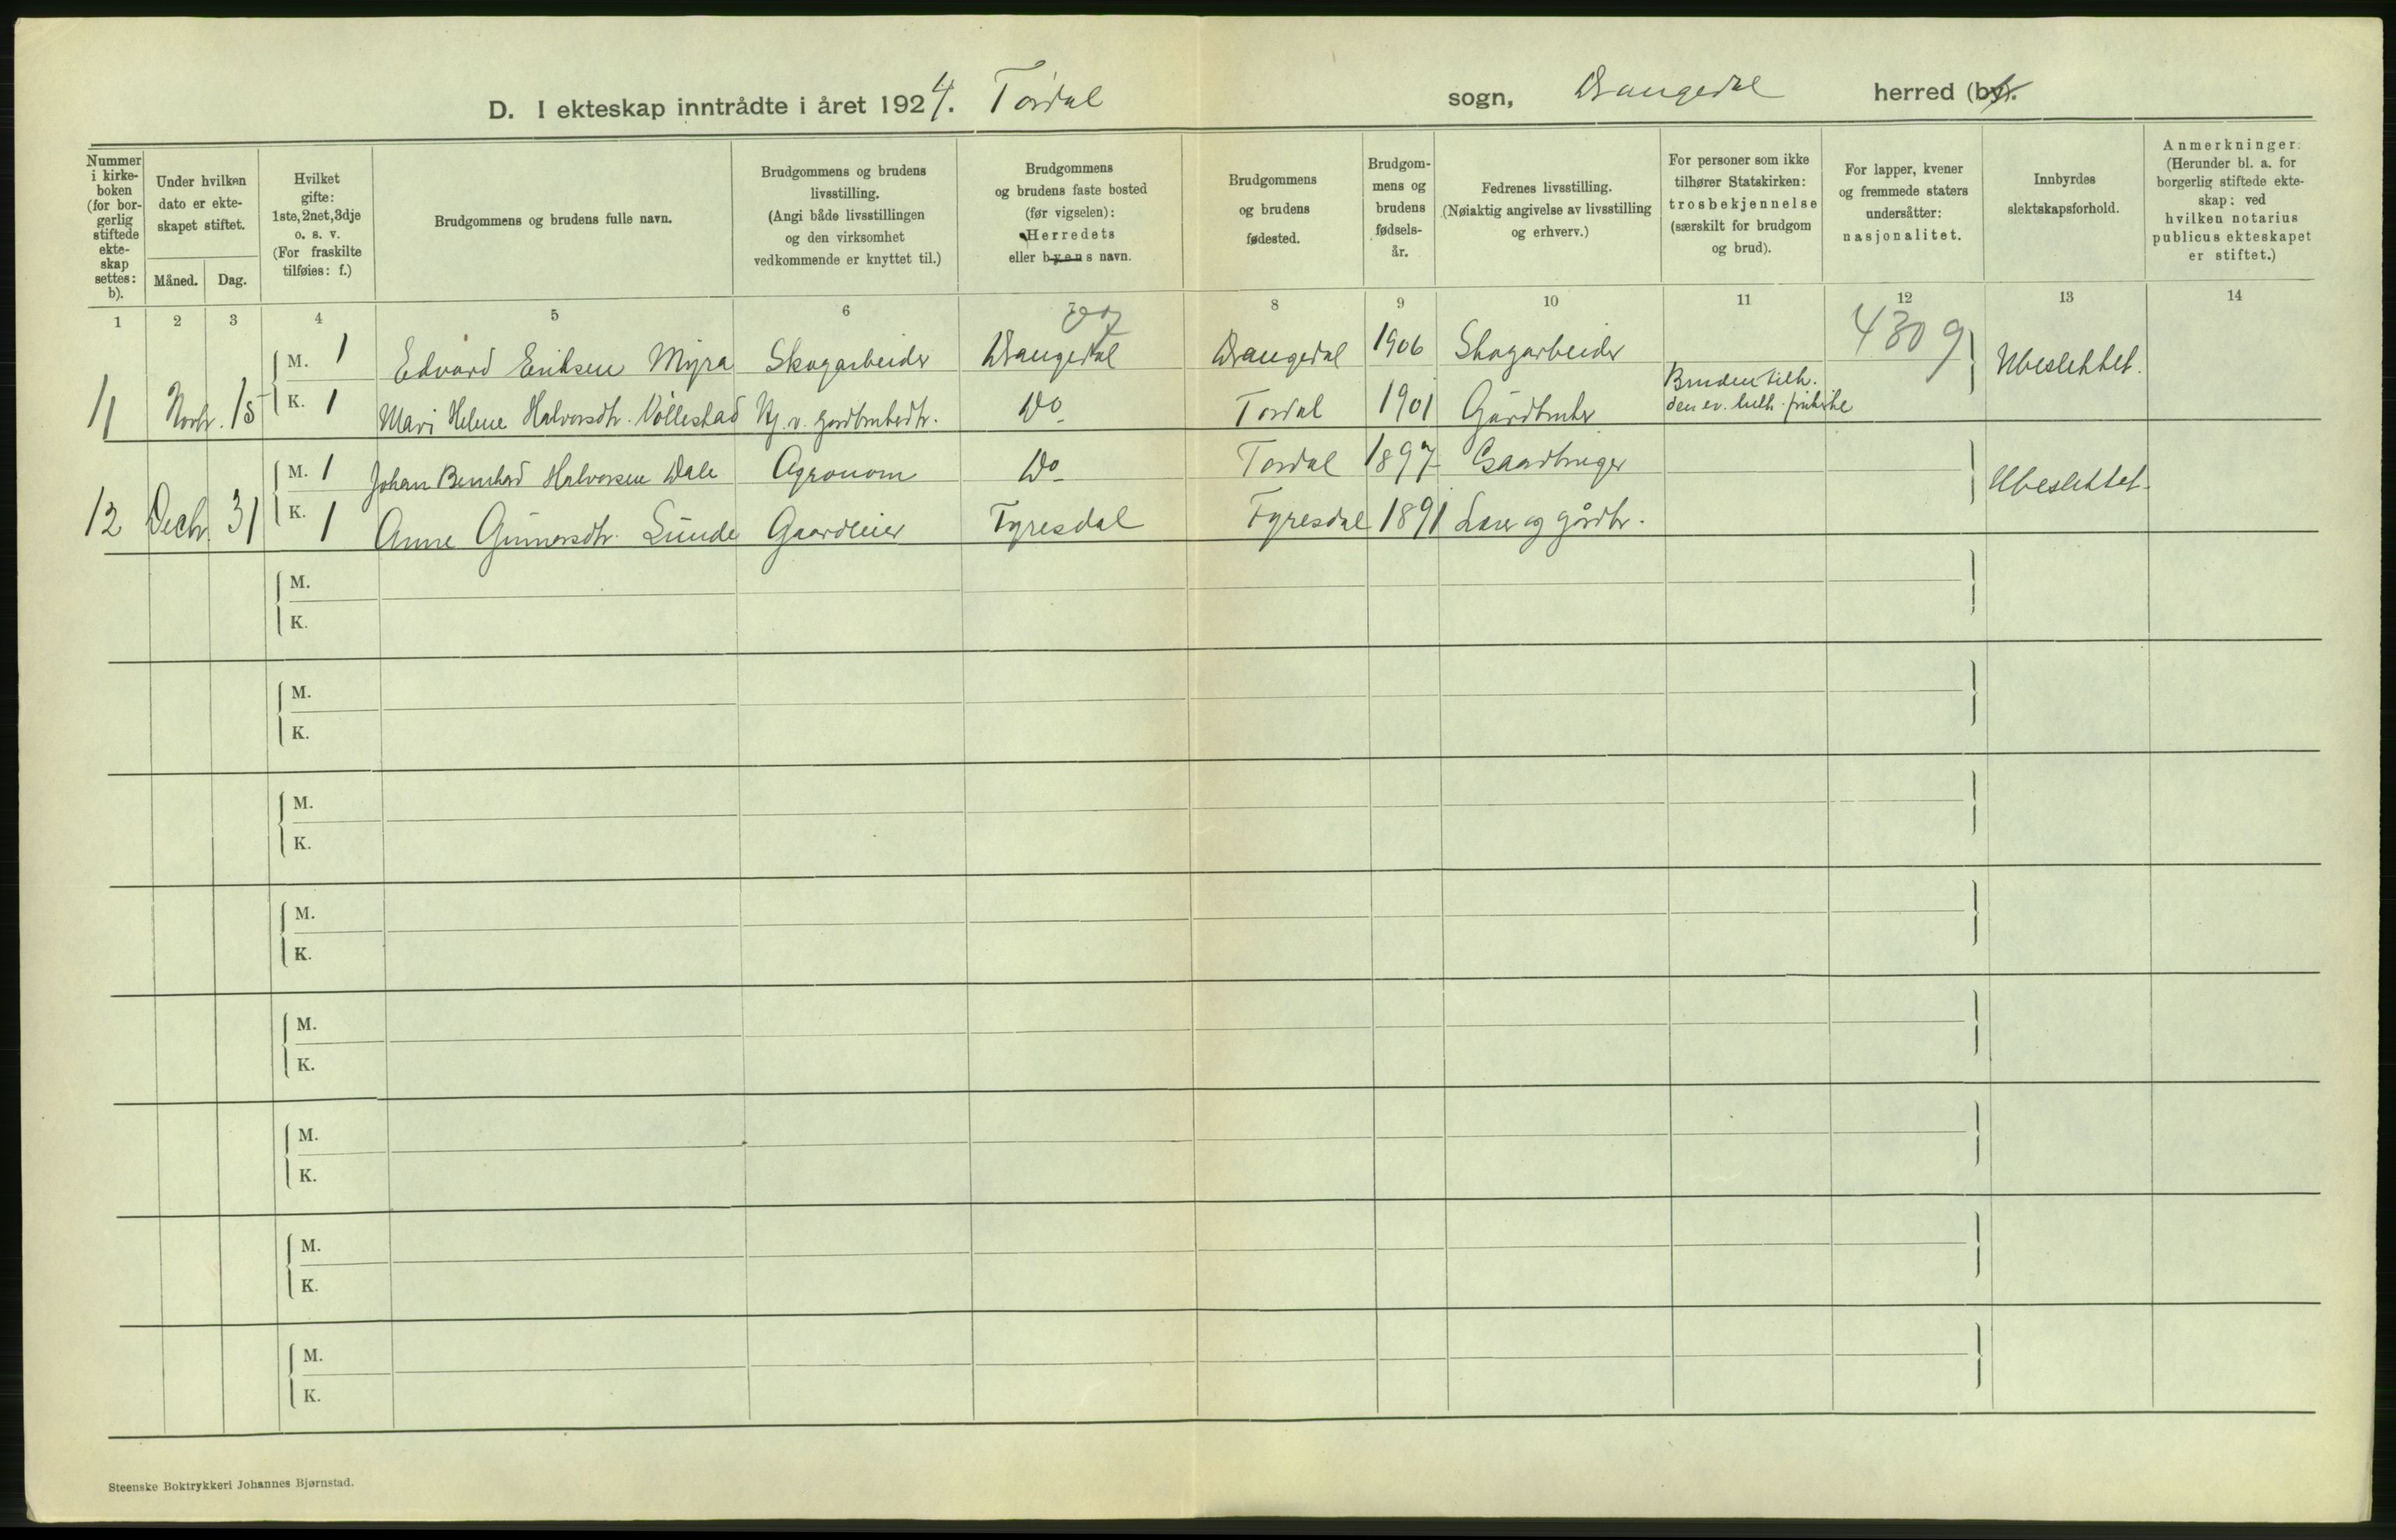 D. I ekteskap inntrådte i året 1924. Tørdal sogn, Drangedal herred (by).
Nummer i kirke-boken (for bor-gerlig stiftede ekte-skap settes: b).
Under hvilken dato er ekte-skapet stiftet.
Måned. Dag.
Hvilket gifte: 1ste, 2net, 3dje o. s. v. (For fraskilte tilføies: f.)
Brudgommens og brudens fulle navn.
Brudgommens og brudens livsstilling. (Angi både livsstillingen og den virksomhet vedkommende er knyttet til.)
Brudgommens og brudens faste bosted (før vigselen): Herredets eller byens navn.
Brudgommens og brudens fødested.
Brudgom-mens og brudens fødsels-år.
Fedrenes livsstilling. (Nøiaktig angivelse av livsstilling og erhverv.)
For personer som ikke tilhører Statskirken: trosbekjennelse (særskilt for brudgom og brud).
For lapper, kvener og fremmede staters undersåtter: nasjonalitet.
Innbyrdes slektskapsforhold.
Anmerkninger. (Herunder bl. a. for borgerlig stiftede ekte-skap: ved hvilken notarius publicus ekteskapet er stiftet.)
1 2 3 4 5 6 8 9 10 11 12 13 14
4309
M. 1 Edvard Eriksen Myra Skogarbeider Drangedal Drangedal 1906 Skogarbeider Ubeslektet.
11 Novbr. 15 K. 1 Mari Helene Halvorsdtr. Vøllestad Hj. v. gardbrukerdtr. Do Tørdal 1901 Gårdbruker Bruden tilh. den ev. luth. frikirke
M. 1 Johan Bernhard Halvorsen Dale Agronom Do Tørdal 1897 Gaardbruger Ubeslektet.
12 Decbr. 31 K. 1 Anne Gunnarsdtr. Lunde Gaardeier Fyresdal Fyresdal 1891 Lærer og gårdbr.
M.
K.
M.
K.
M.
K.
M.
K.
M.
K.
M.
K.
M.
K.
M.
K.
Steenske Boktrykkeri Johannes Bjørnstad.